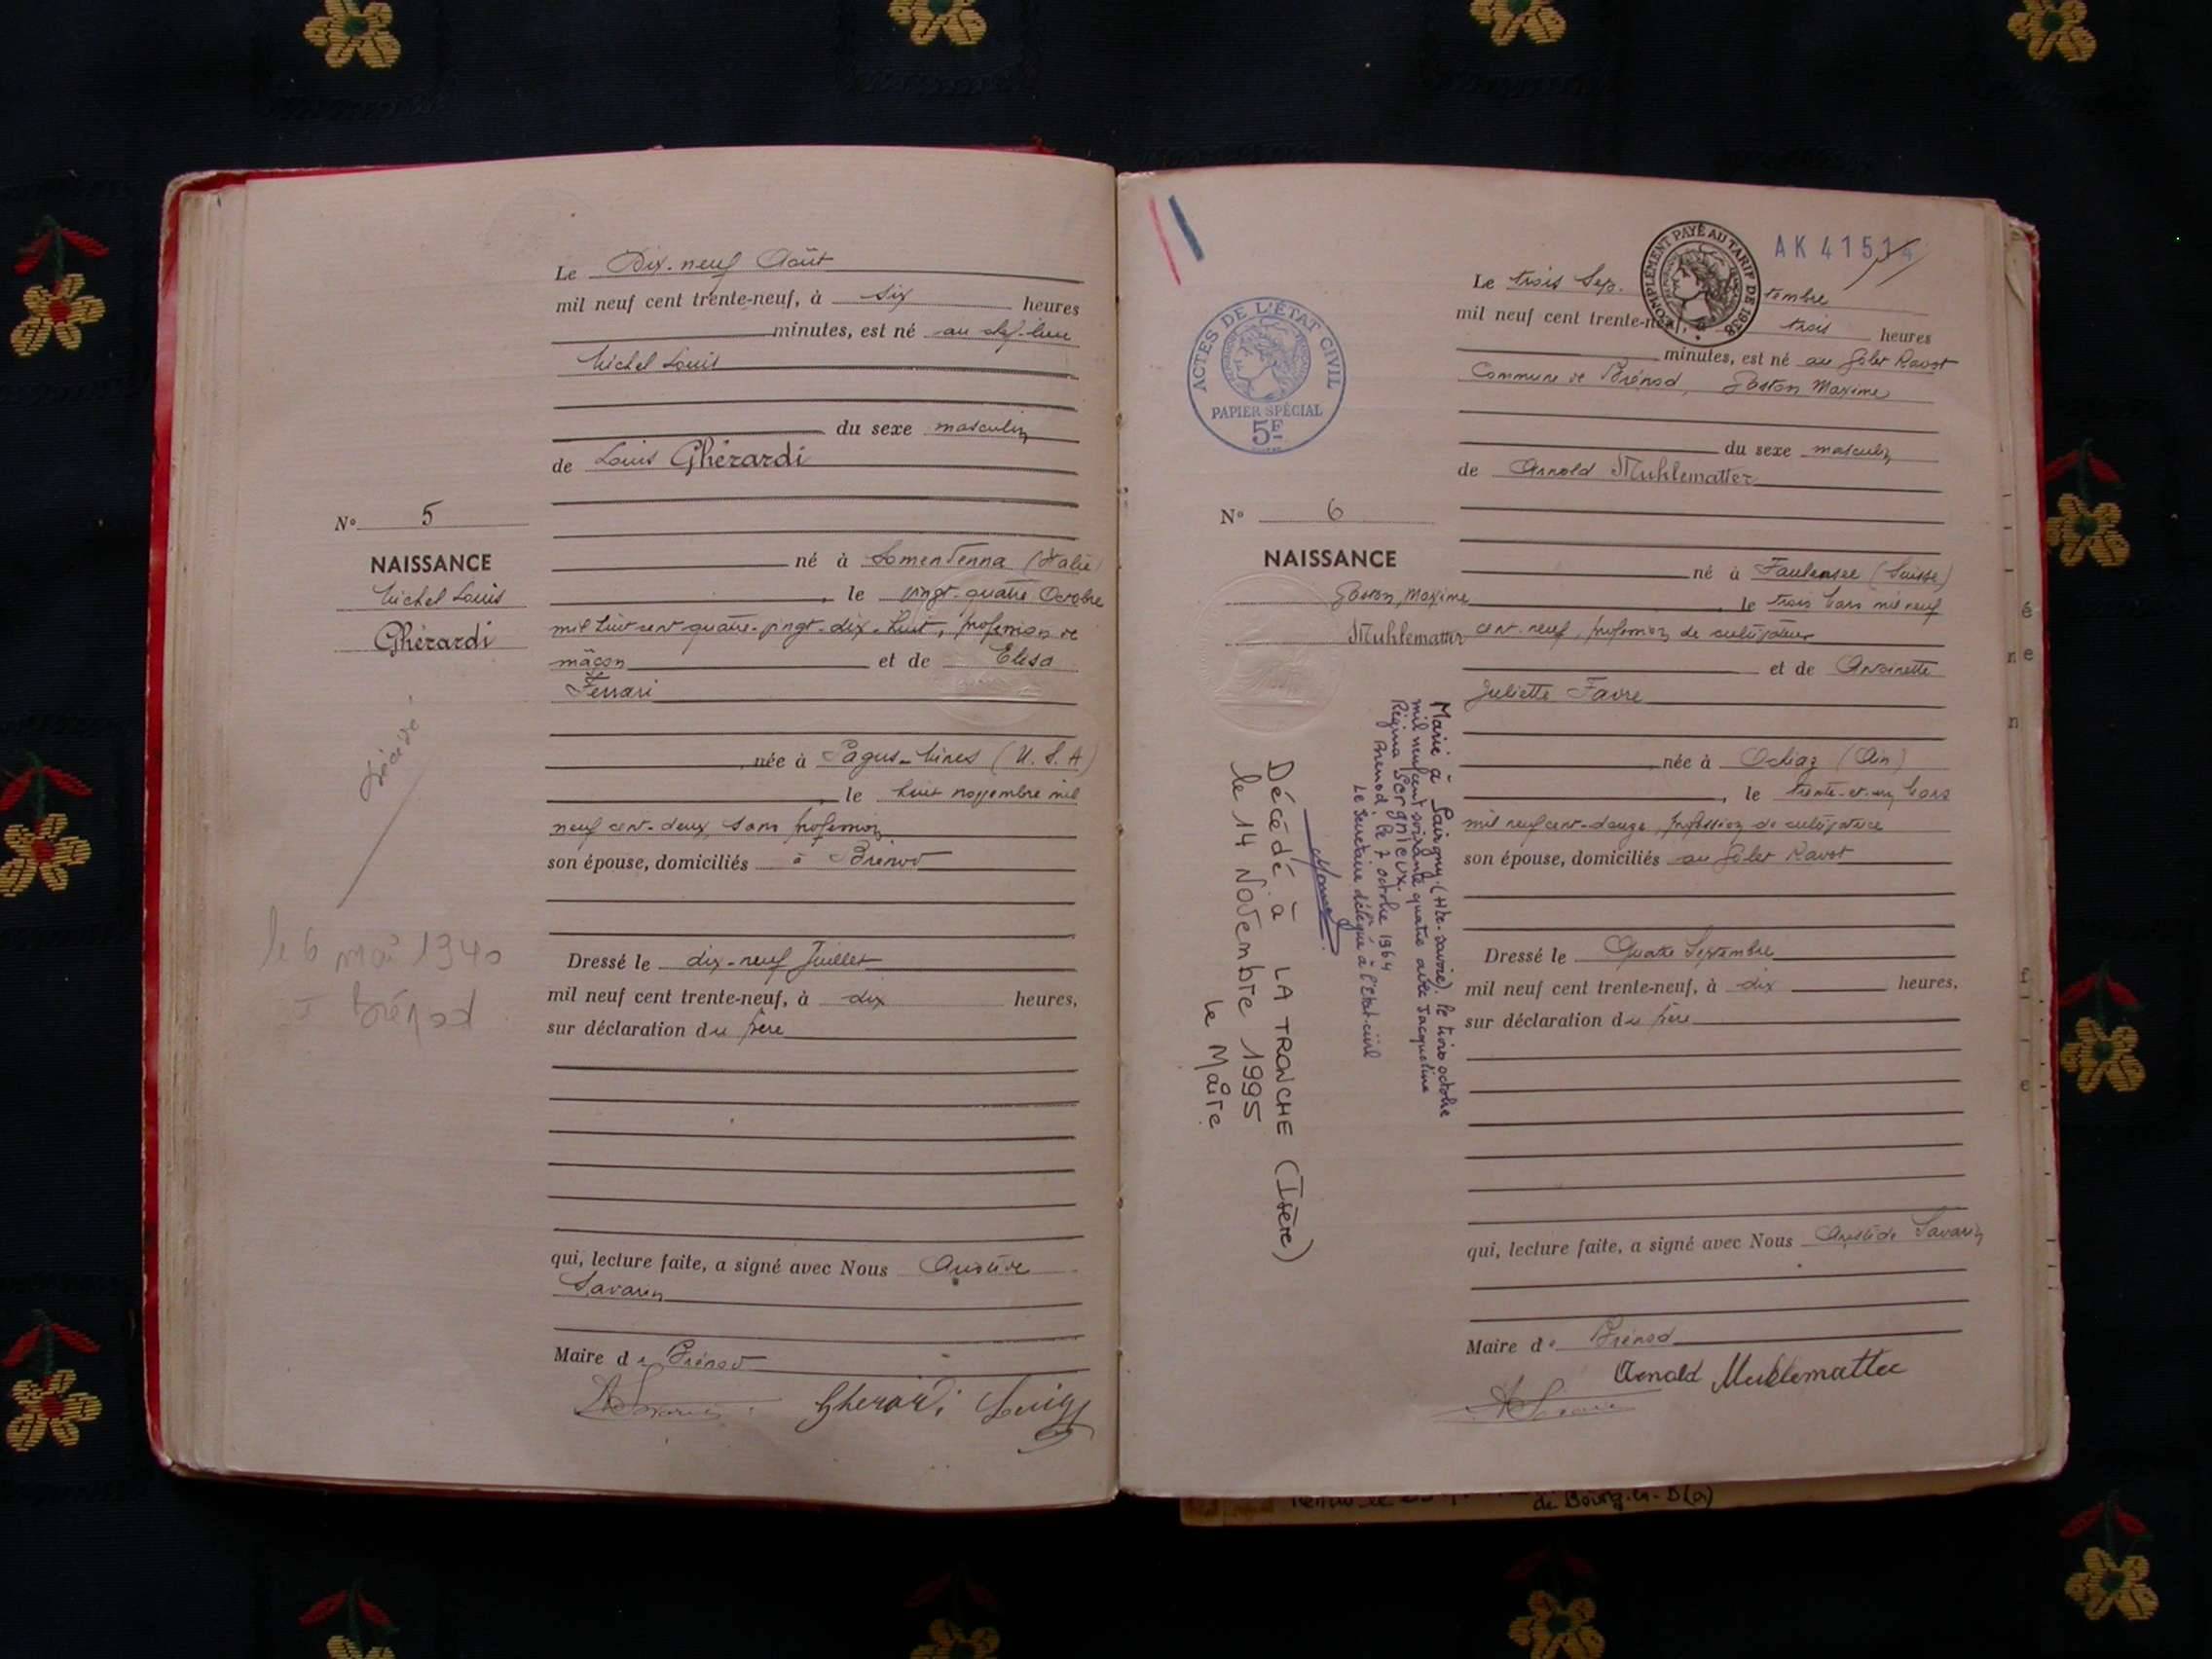 Le Dix-neuf Août
mil neuf cent trente-neuf, à six heures
minutes, est né au chef-lieu
Michel Louis
du sexe masculin
de Louis Ghérardi
N° 5
NAISSANCE
Michel Louis
Ghérardi
décédé
le 6 mai 1940
à Brénod
né à Somendenna (Italie)
, le vingt-quatre Octobre
mil huit cent quatre-vingt-dix-huit, profession de
mâçon et de Elisa
Ferrari
née à Pagus-Mines (U.S.A)
, le huit novembre mil
neuf cent-deux, sans profession
son épouse, domiciliés à Brénod
Dressé le dix-neuf Juillet
mil neuf cent trente-neuf, à dix heures,
sur déclaration du père
qui, lecture faite, a signé avec Nous Aristide
Savarin
Maire de Brénod
Gherardi Luigi
AK 4151
COMPLÉMENT PAYÉ AU TARIF DE 1938
ACTES DE L'ÉTAT CIVIL
PAPIER SPÉCIAL
5F
Le trois Sep-tembre
mil neuf cent trente-neuf, à trois heures
minutes, est né au Golet Ravot
Commune de Brénod, Gaston Maxime
du sexe masculin
de Arnold Muhlematter
N° 6
NAISSANCE
Gaston, Maxime
Muhlematter
né à Faulensee (Suisse)
, le trois Mars mil neuf
cent-neuf, profession de cultivateur
et de Antoinette
Juliette Favre
née à Ochiaz (Ain)
, le trente-et-un Mars
mil neuf cent-douze, profession de cultivatrice
son épouse, domiciliés au Golet Ravot
Dressé le Quatre Septembre
mil neuf cent trente-neuf, à dix heures,
sur déclaration du père
qui, lecture faite, a signé avec Nous Aristide Savarin
Maire de Brénod
Arnold Muhlematter
Marié à (Hte-Savoie). le trois octobre
mil neuf cent soixante quatre avec Jacqueline
Régina Sorgnieux
Brenod, le 7 octobre 1964
Le Secrétaire délégué à l'Etat-civil
Décédé à LA TRONCHE (Isère)
le 14 Novembre 1995
Le Maire
de Bourg